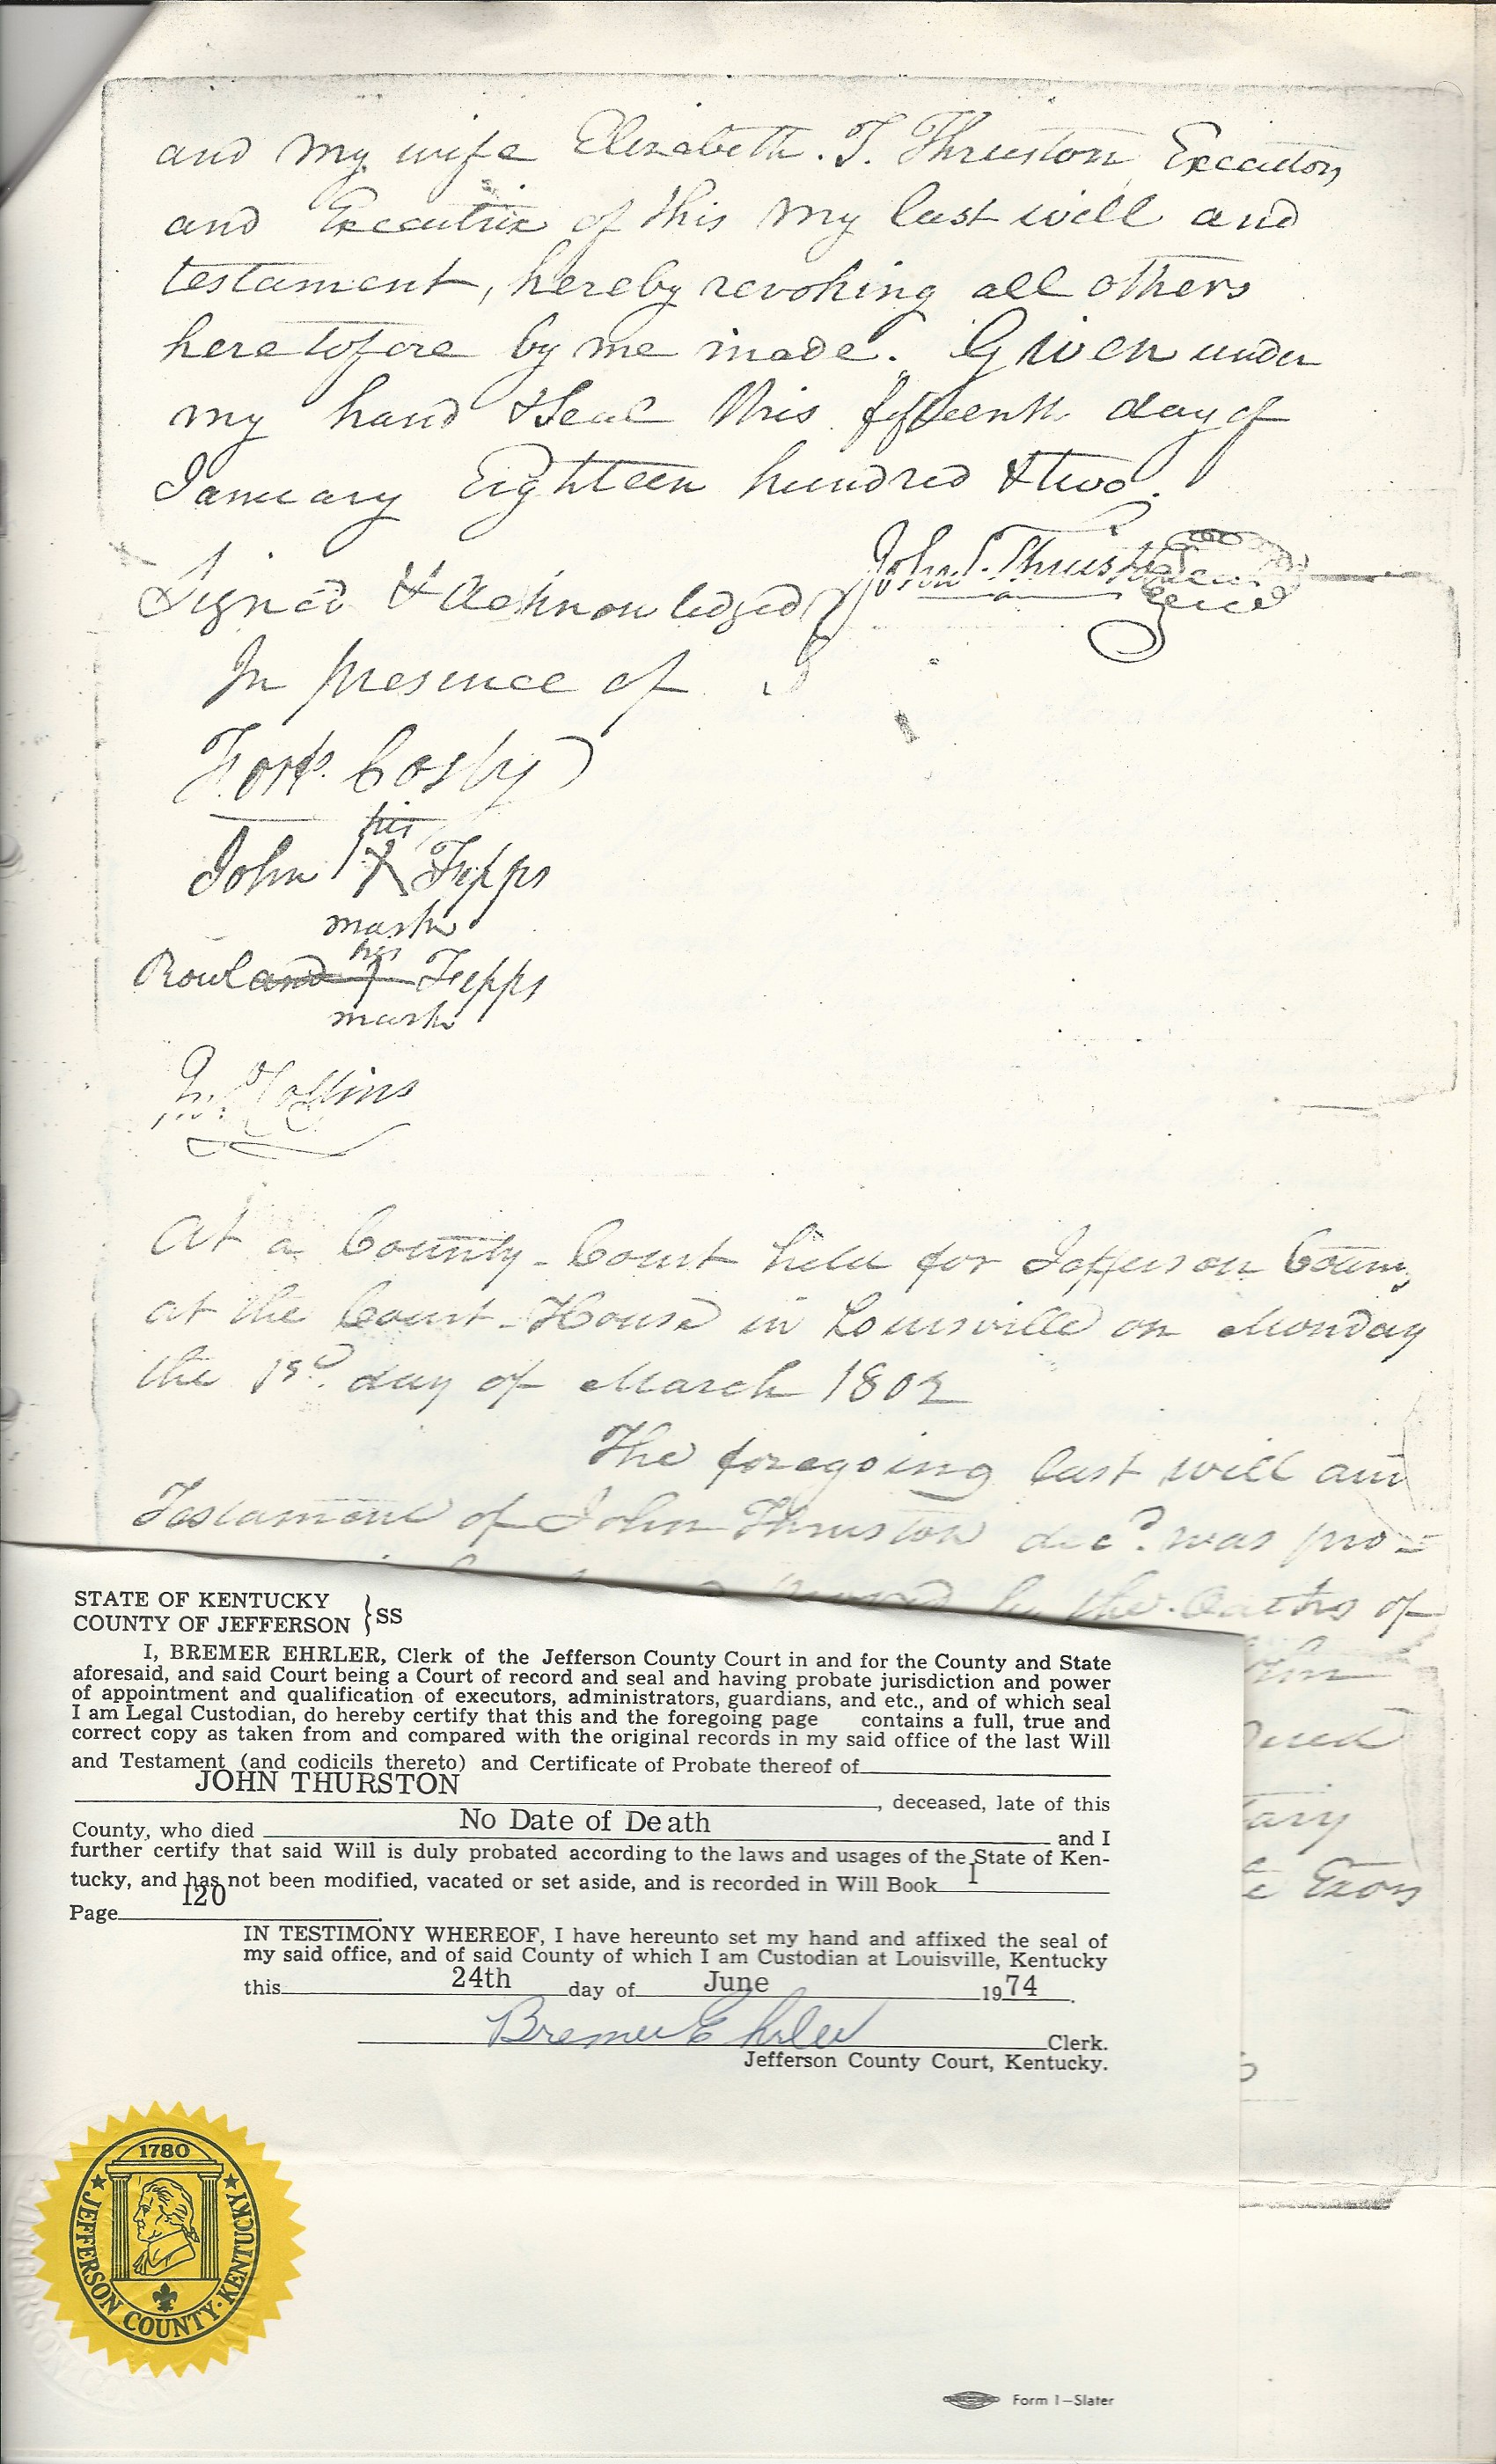 and my wife Elizabeth. T. Thruston, Executors
and Executrix of this my last will and
testament, hereby revoking all others
heretofore by me made. Given under
my hand & Seal this fifteenth day of
January Eighteen hundred & two.
John Thruston
Signed & Acknowledged
In presence of
Fort. Cosby
his
John X Fepps
mark
his
Rowland Fepps
mark
Collins
At a County-Court held for Jefferson County
at the Court-House in Louisville on Monday
the 1st. day of March 1802
The foregoing last will and
Testament of John Thruston decd. was pro=
by the Oaths of
STATE OF KENTUCKY
COUNTY OF JEFFERSON } SS
I, BREMER EHRLER, Clerk of the Jefferson County Court in and for the County and State
aforesaid, and said Court being a Court of record and seal and having probate jurisdiction and power
of appointment and qualification of executors, administrators, guardians, and etc., and of which seal
I am Legal Custodian, do hereby certify that this and the foregoing page contains a full, true and
correct copy as taken from and compared with the original records in my said office of the last Will
and Testament (and codicils thereto) and Certificate of Probate thereof of
JOHN THURSTON
, deceased, late of this
County, who died No Date of Death and I
further certify that said Will is duly probated according to the laws and usages of the State of Ken-
tucky, and has not been modified, vacated or set aside, and is recorded in Will Book 1
Page 120.
IN TESTIMONY WHEREOF, I have hereunto set my hand and affixed the seal of
my said office, and of said County of which I am Custodian at Louisville, Kentucky
this 24th day of June 1974.
Bremer Ehrler Clerk.
Jefferson County Court, Kentucky.
1780
JEFFERSON COUNTY · KENTUCKY
Form 1—Slater